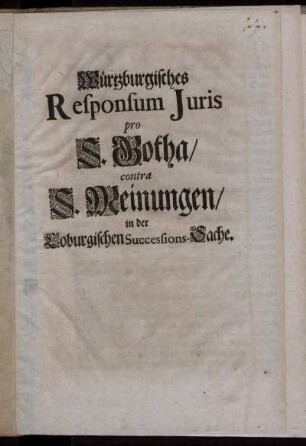 Würtzburgisches
Responsum Juris
pro
S. Gotha/
contra
S. Meinungen/
in der
Coburgischen Successions-Sache.